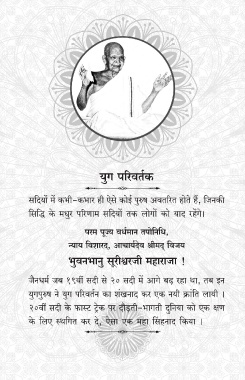 युग परिवर्तक
सदियों में कभी-कभार ही ऐसे कोई पुरुष अवतरित होते हैं, जिनकी
सिद्धि के मधुर परिणाम सदियों तक लोगों को याद रहेंगे।
परम पूज्य वर्धमान तपोनिधि,
न्याय विशारद, आचार्यदेव श्रीमद् विजय
भुवनभानु सूरीश्वरजी महाराजा !
जैनधर्म जब १९वीं सदी से २० सदी में आगे बढ़ रहा था, तब इन
युगपुरुष ने युग परिवर्तन का शंखनाद कर एक नयी क्रांति लायी ।
२०वीं सदी के फास्ट ट्रेक पर दौड़ती-भागती दुनिया को एक क्षण
के लिए स्थगित कर दे, ऐसा एक महा सिंहनाद किया ।